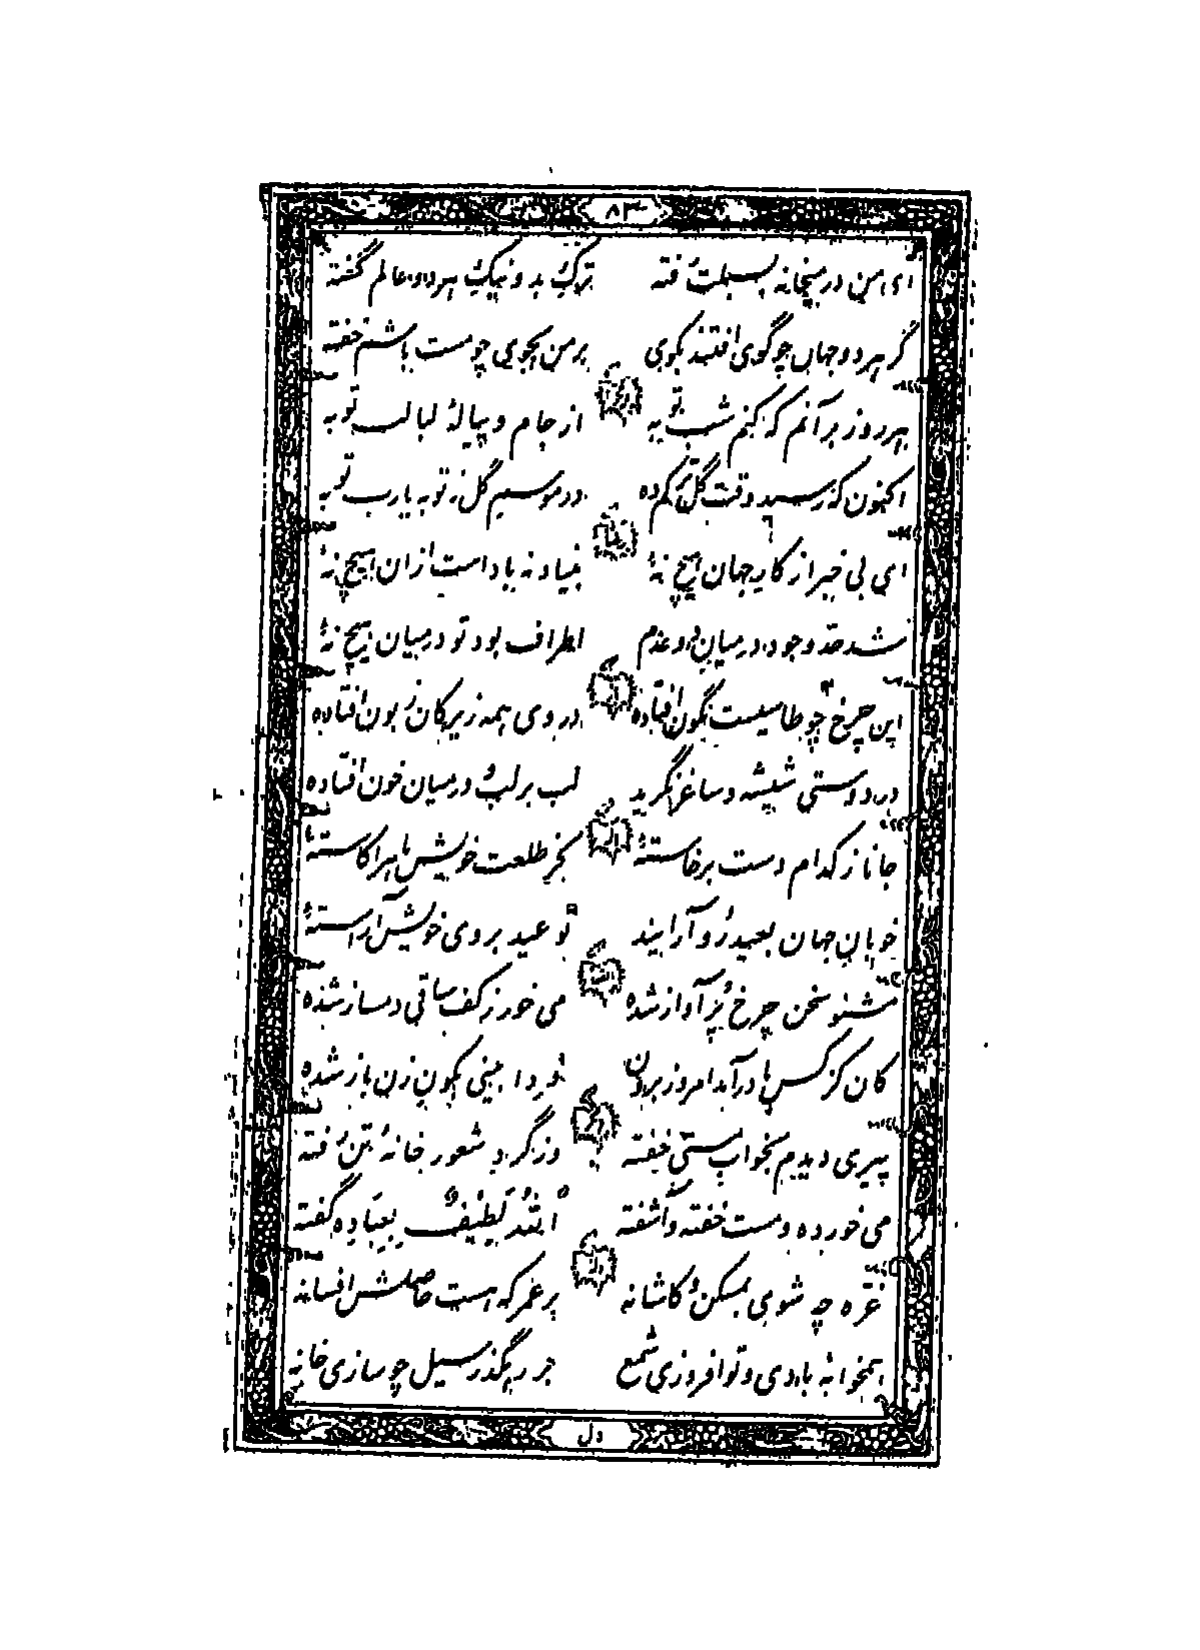 ۸۳
ای من در میخانه بسبلت رفته ترک بد و نیک هر دو عالم گفته
گر هر دو جهان چو گوی افتند بکوی بر من بجوی چو مست باشم خفته
هر روز بر آنم که کنم شب توبه از جام و پیالهٔ لبالب توبه
اکنون که رسید وقت گل ترکم ده در موسم گل ز توبه یارب توبه
ای بی خبر از کار جهان هیچ نهٔ بنیاد نه باد است ازان هیچ نهٔ
شد حد وجود در میان دو عدم اطراف بود تو در میان هیچ نهٔ
این چرخ چو طاسیست نگون افتاده در وی همه زیرکان زبون افتاده
در دوستی شیشه و ساغر نگرید لب بر لب و در میان خون افتاده
جانا ز کدام دست برخاستهٔ کز طلعت خویش ماه را کاستهٔ
خوبان جهان بعید رو آرایند تو عید بروی خویش آراستهٔ
مشنو سخن چرخ پر آواز شده می خور ز کف ساقی دمساز شده
کان کز کس ما در آمد امروز برون فردا بینی بکون زن باز شده
پیری دیدم بخواب مستی خفته وز گرد شعور خانهٔ تن رفته
می خورده و مست خفته و آشفته اَللهُ لَطِیْفٌ بِعِبَادِهِ گفته
غره چه شوی بمسکن و کاشانه بر عمر که هست حاصلش افسانه
همخوانه بادی و تو افروزی شمع بر رهگذر سیل چو سازی خانه
دل